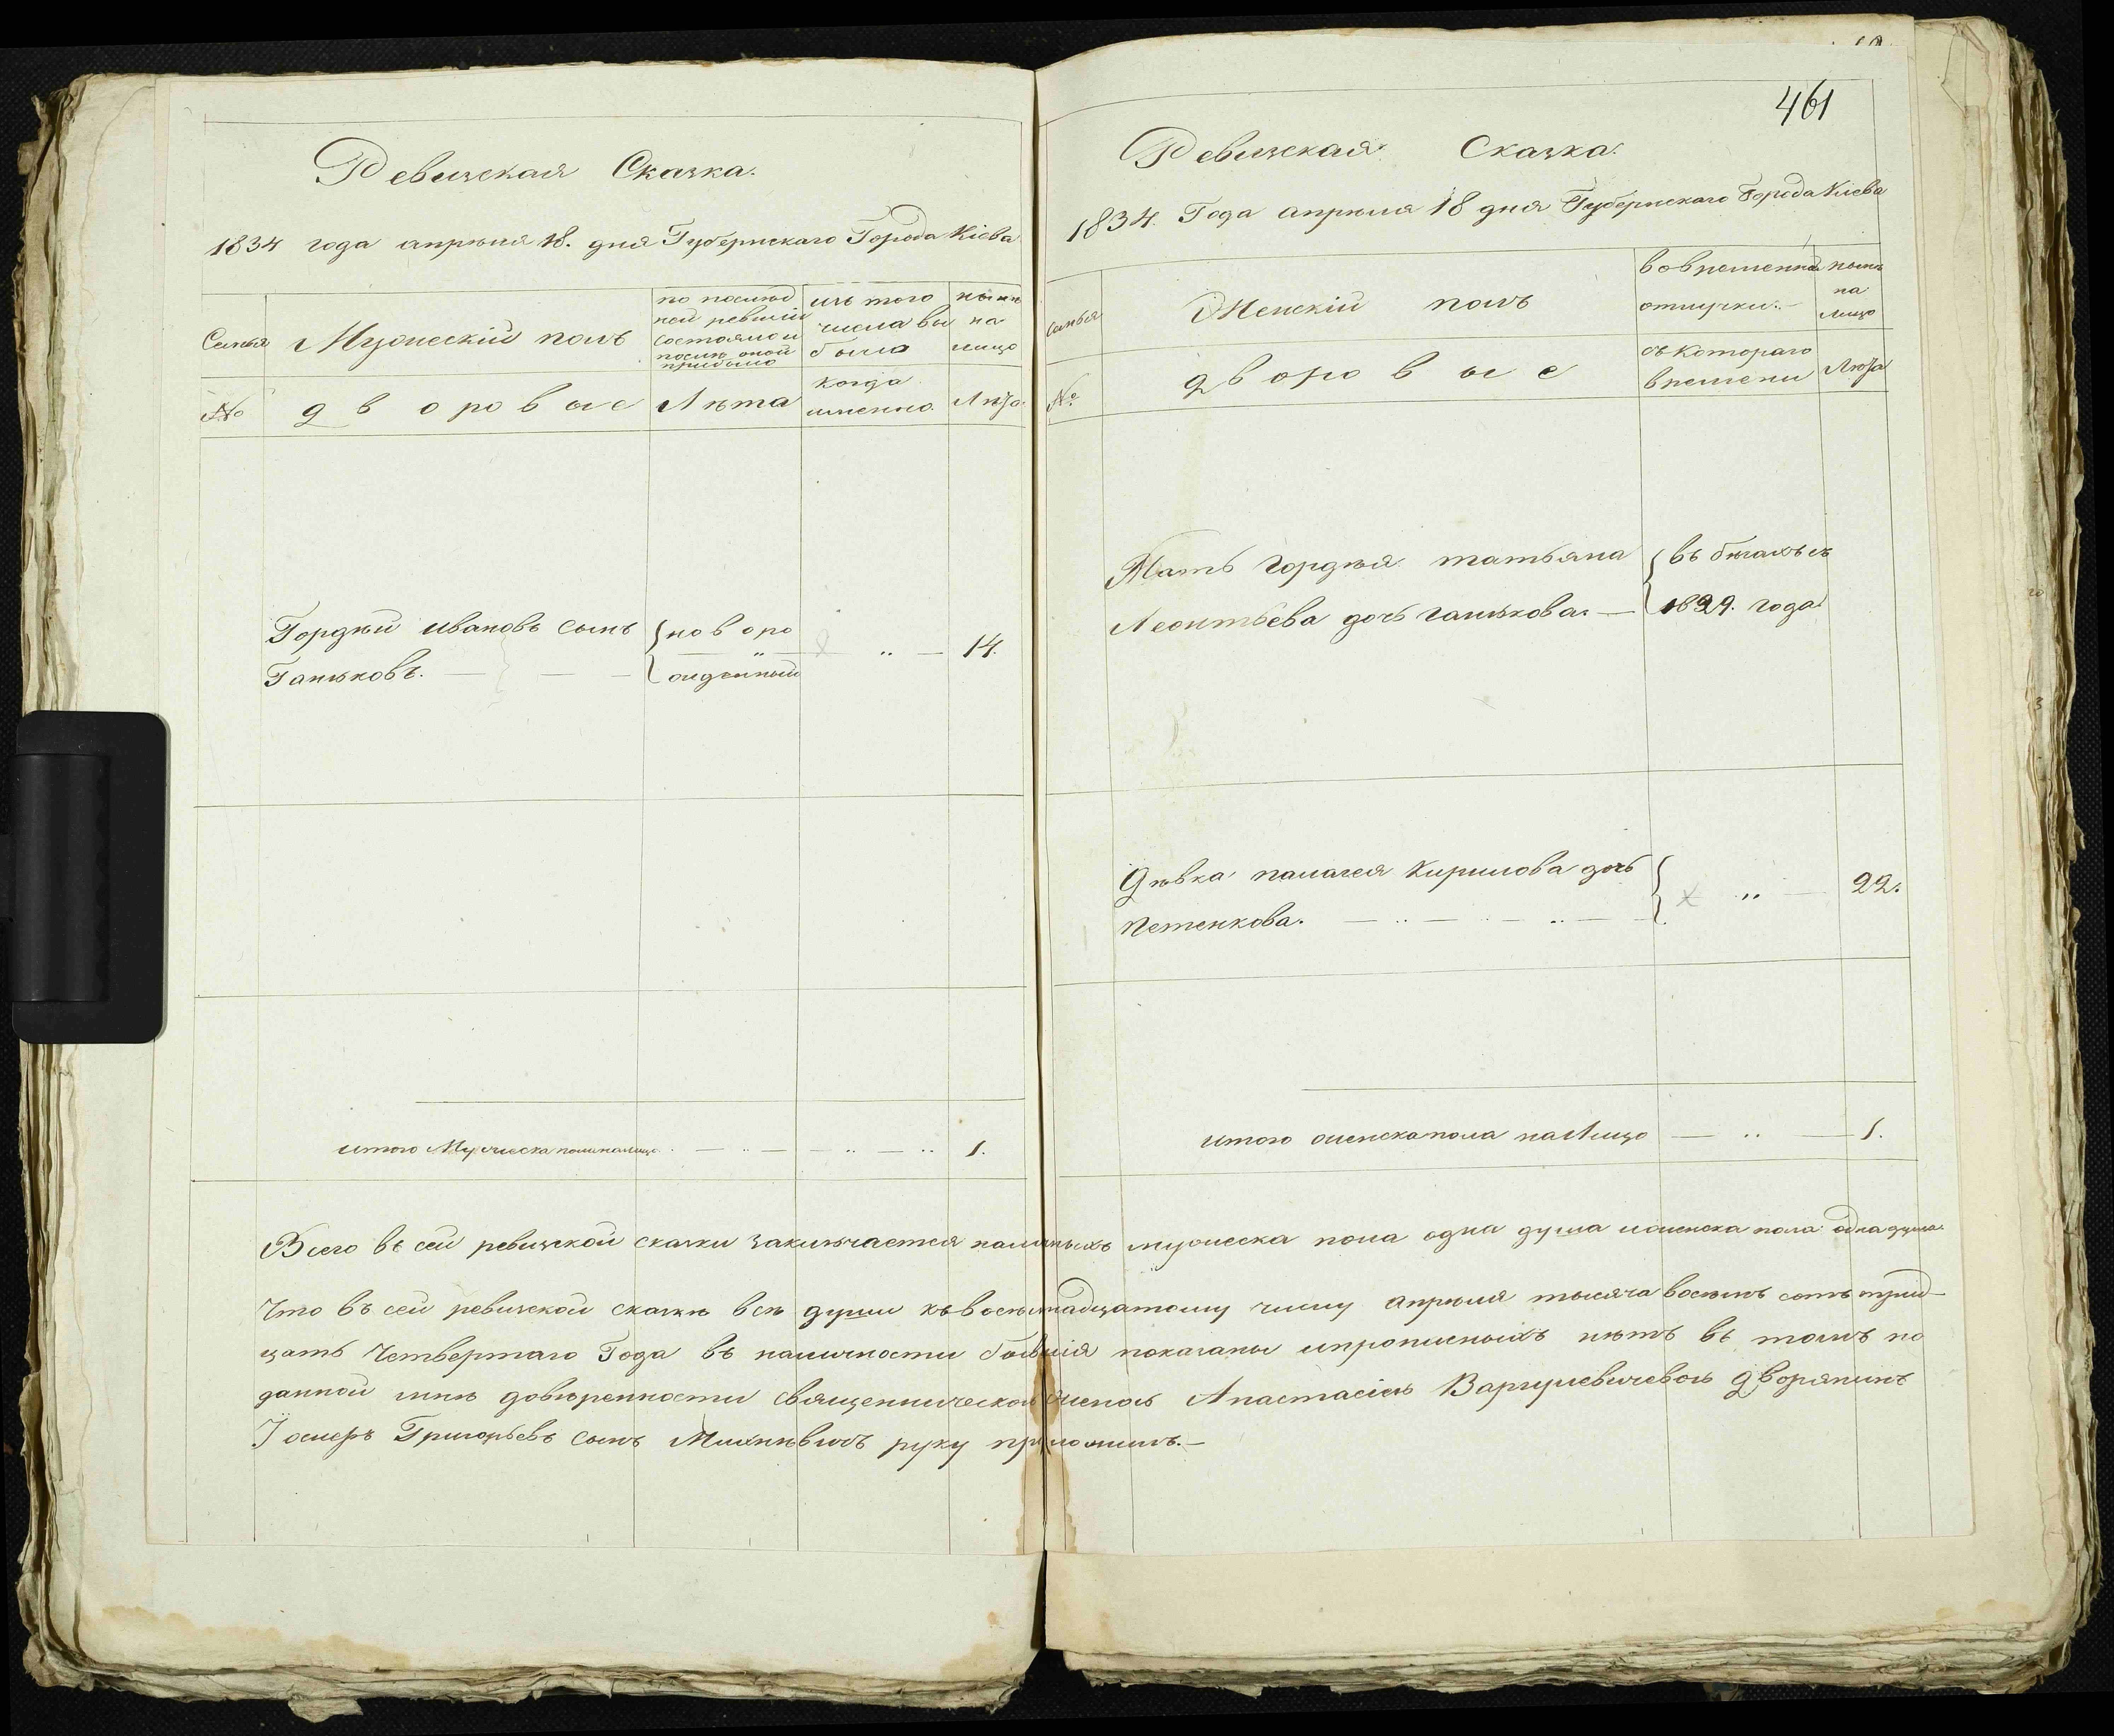 461
Ревизская Сказка.
1834 года апреля 18. дня Губернскаго Города Кіева
Семья
Мужескій полъ
по послед
ней ревизіи
состояло и
после оной
прибыло
изъ того
числа вы
было
ныне
на
лицо
№
дворовые
Лѣта
когда
именно.
Лѣта
Гордѣй Ивановъ сынъ
Ганьковъ.
новоро
жденный
14.
итого Мужеска пола налицо
1.
Ревизская Сказка.
1834. Года апрѣля 18 дня Губернскаго Города Кіева
Семья
Женскій полъ
вовременной
отлучки.
ныне
на
лицо
№
дворовые
съ котораго
времени
Лѣта
Мать Гордѣя татьяна
Леонтьева дочь ганькова.
въ бегахъ съ
1829. года
Дѣвка палагея Кирилова дочь
петенкова.
22.
итого женска пола на Лицо
1.
Всего въ сей ревизской сказки заключается наличныхъ мужеска пола одна душа и женска пола одна душа.
Что въ сей ревизской сказкѣ всѣ души къ восемнадцатому числу апрѣля тысяча восемь сотъ трид-
цать Четвертаго Года въ наличности бывшія показаны и прописныхъ нѣтъ въ томъ по
данной мнѣ довѣренности священнической женою Анастасіею Варгулевичевою дворянинъ
Іосифъ Григорьевъ сынъ Михневичъ руку приложилъ.